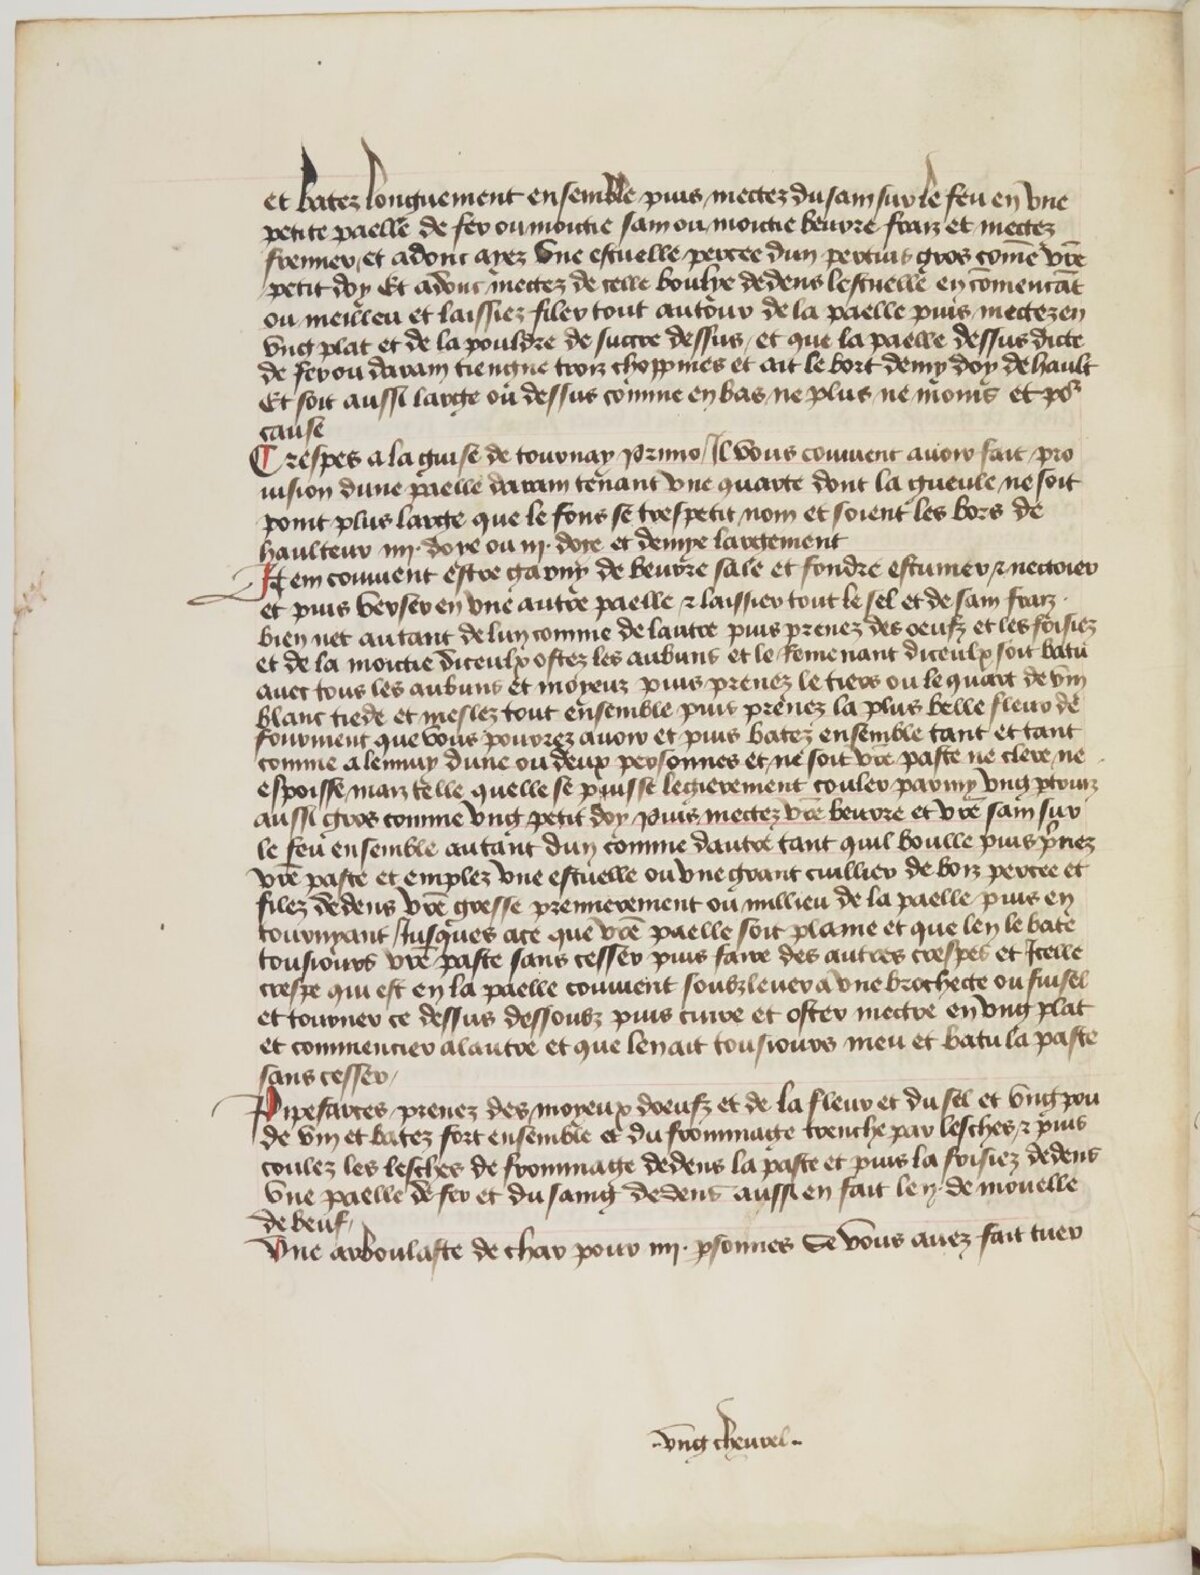 et batez longuement ensemble puis mectez du sain sur le feu en une
petite paelle de fer ou moictie sain ou moictie beurre fraiz et mectez
fremier et adonc ayez une escuelle percee dun pertuis gros come vre
petit doy Et adonc mectez de celle boulye dedens lescuelle en comencat
ou meilleu et laissiez filer tout autour de la paelle puis mectez en
ung plat et de la pouldre de succre dessus / et que la paelle dessus dicte
de fer ou darain tiengne troiz choppines et ait le bort demy doy de hault
Et soit aussi large ou dessus comme en bas ne plus ne moins et po
cause
Crespes a la guise de tournay Primo / Il vous convient avoir fait pro
vision dune paelle darain tenant une quarte dont la gueule ne soit
point plus large que le fons se trespetit nom et soient les bors de
haulteur iiii. doye ou iii. doye et demye largement
Item convient estre garny de beurre sale et fondre escumer & nectoier
et puis verser en une autre paelle & laissier tout le sel et de sain fraiz.
bien net autant de lun comme de lautre puis prenez des oeufz et les frisiez
et de la moictie diceulx ostez les aubuns et le Remenant diceulx soit batu
avec tous les aubuns et moyeux puis prenez le tiers ou le quart de vin
blanc tiede et meslez tout ensemble puis prenez la plus belle fleur de
fourment que vous pourrez avoir et puis batez ensemble tant et tant
comme a lennuy dune ou deux personnes et ne soit vre paste ne clere ne
espoisse maiz telle quelle se puisse legierement couler parmy ung ptruiz
aussi gros comme ung petit doy Puis mectez vre beurre et vre sain sur
le feu ensemble autant dun comme dautre tant quil boulle puis pnez
vre paste et emplez une escuelle ou une grant cuillier de boiz percee et
filez dedens vre gresse premierement ou millieu de la paelle puis en
tournyant Jusques ace que vre paelle soit plaine et que len le bate
tousiours vre paste sans cesser puis faire des autres crespes et Icelle
crespe qui est en la paelle convient soubzlever a une brochecte ou fuisel
et tourner ce dessus dessoubz puis cuire et oster mectre en ung plat
et commencier a lautre et que len ait tousiours meu et batu la paste
sans cesser /
Pipefarces prenez des moyeux doeufz et de la fleur et du sel et ung pou
de vin et batez fort ensemble et du frommage trenche par lesches & puis
coulez les lesches de frommage dedens la paste et puis la frisiez dedens
une paelle de fer et du saing dedens aussi en fait len. de mouelle
de beuf /
Une arboulaste de char pour iiii. psonnes Se vous avez fait tuer
.. ung chevrel ..